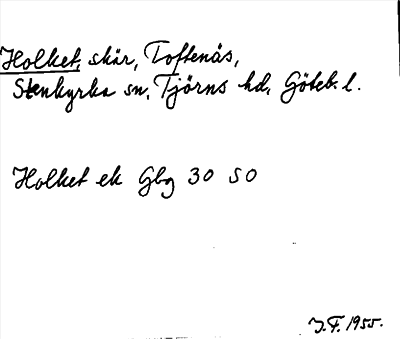 Holket, skär, Toftenäs,
Stenkyrka sn, Tjörns hd, Göteb. l.
Holket ek Gbg 30 SO
J.F. 1955.